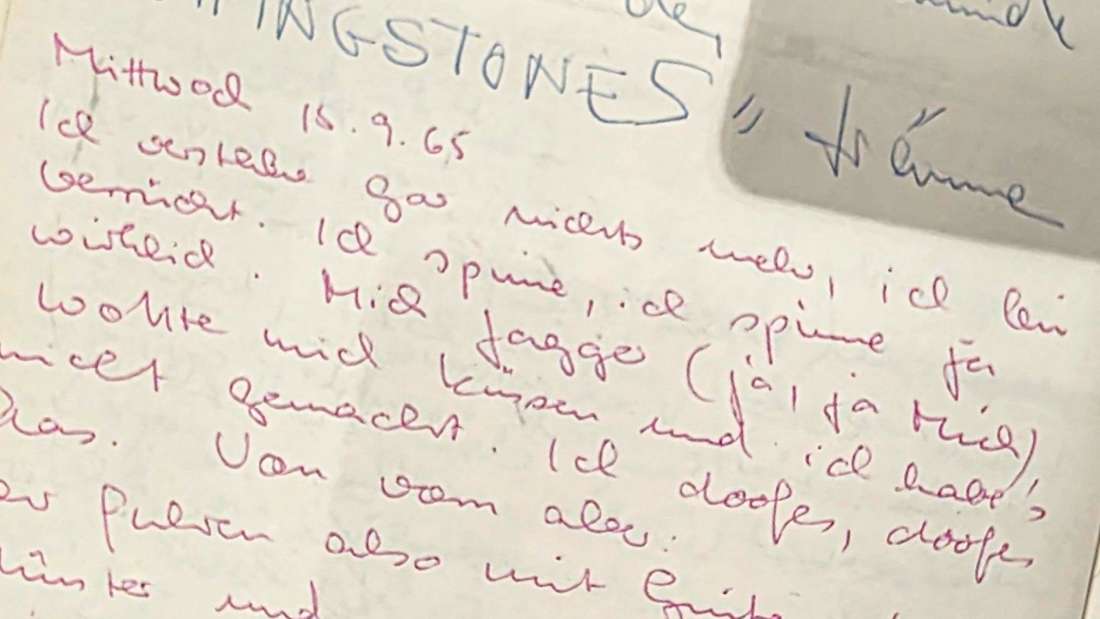 INGSTONES" träume
Mittwoch 15.9.65
Ich verstehe gar nichts mehr, ich bin
verrückt. Ich spinne, ich spinne ja
wirklich. Mick Jagger (ja, ja Mick)
wollte mich küssen und ich habe's
nicht gemacht. Ich doofes, doofes
Aas. Von vorn aber:
fuhren also mit
Münster und